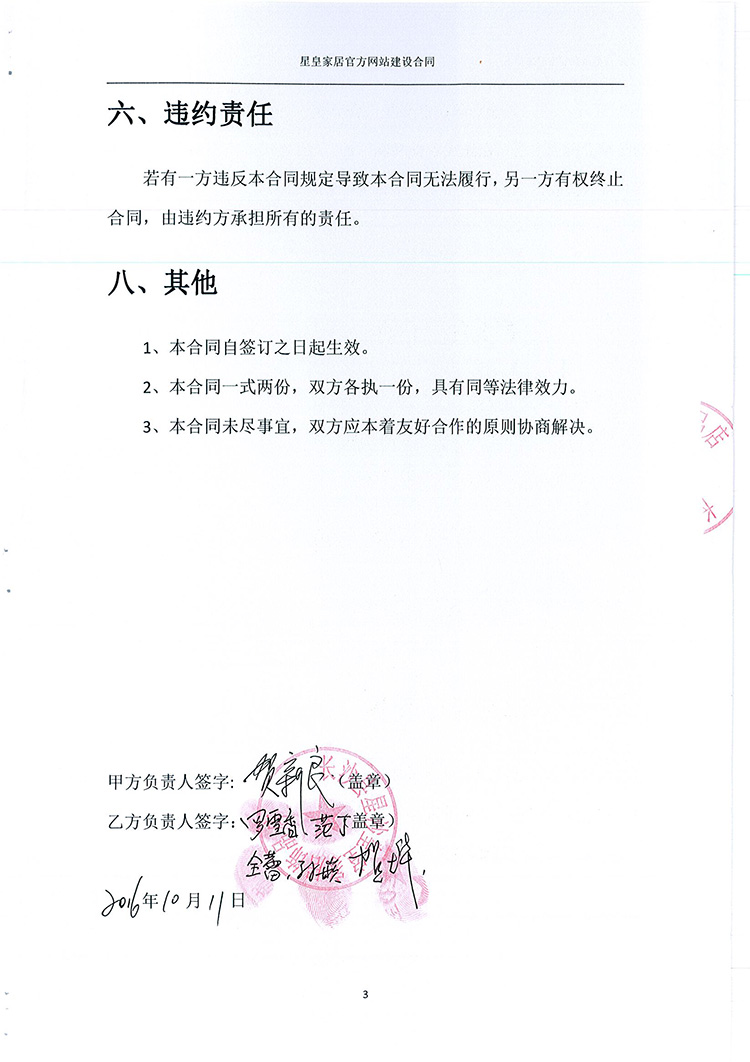 星皇家居官方网站建设合同
六、违约责任
若有一方违反本合同规定导致本合同无法履行，另一方有权终止
合同，由违约方承担所有的责任。
八、其他
1、本合同自签订之日起生效。
2、本合同一式两份，双方各执一份，具有同等法律效力。
3、本合同未尽事宜，双方应本着友好合作的原则协商解决。
店
甲方负责人签字：贺新良（盖章）
乙方负责人签字：罗雪 范 盖章）
2016年10月11日
3